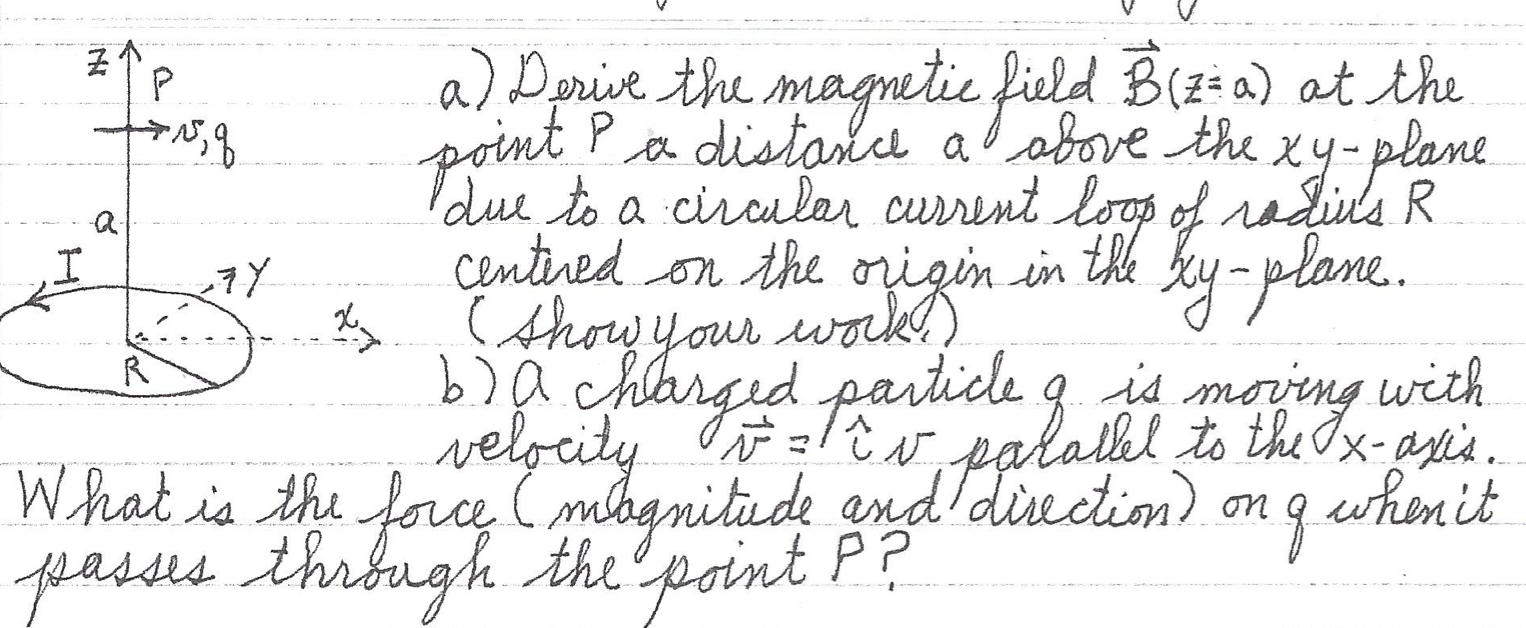 z P
v, q
a
I
y
x
R
a) Derive the magnetic field B⃗(z=a) at the
point P a distance a above the xy-plane
due to a circular current loop of radius R
centered on the origin in the xy-plane.
(Show your work!)
b) A charged particle q is moving with
velocity v⃗ = î v parallel to the x-axis.
What is the force (magnitude and direction) on q when it
passes through the point P?